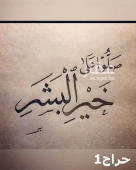 صَلُّوا عَلَىٰ
خَيْرِ الْبَشَرِ
حراج1